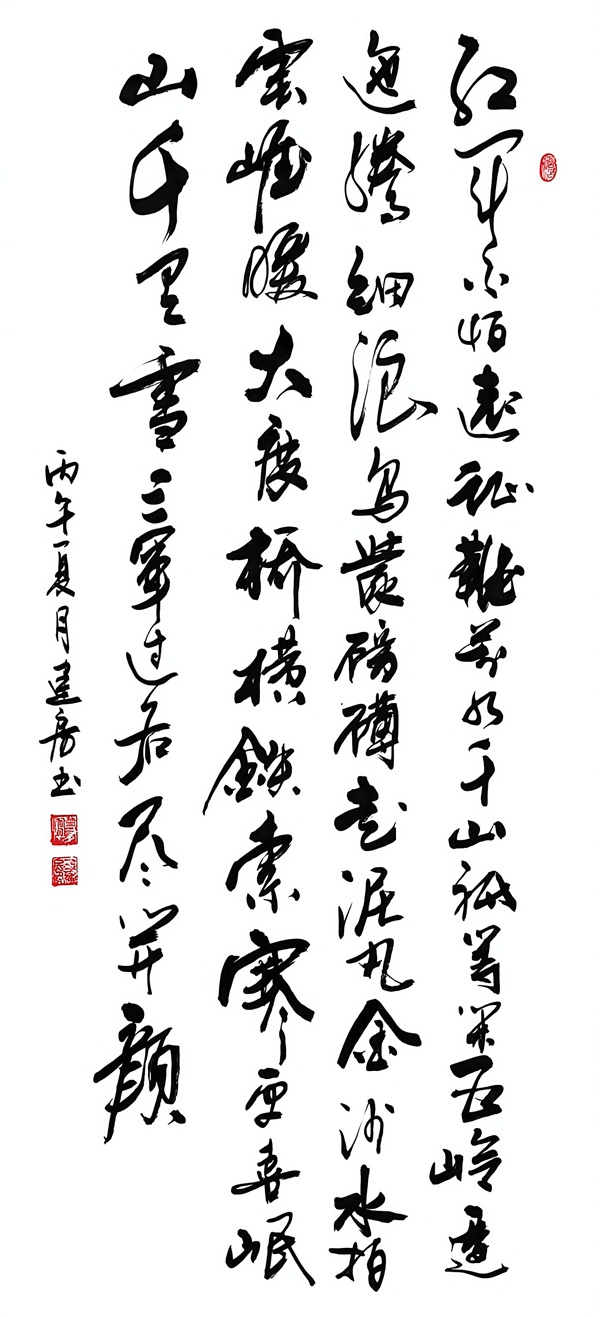 红军不怕远征难万水千山祇等闲五岭逶
迤腾细浪乌蒙磅礴走泥丸金沙水拍
雲崖暖大度桥横鐵索寒更喜岷
山千里雪三军过后尽开颜
丙午夏月建房书